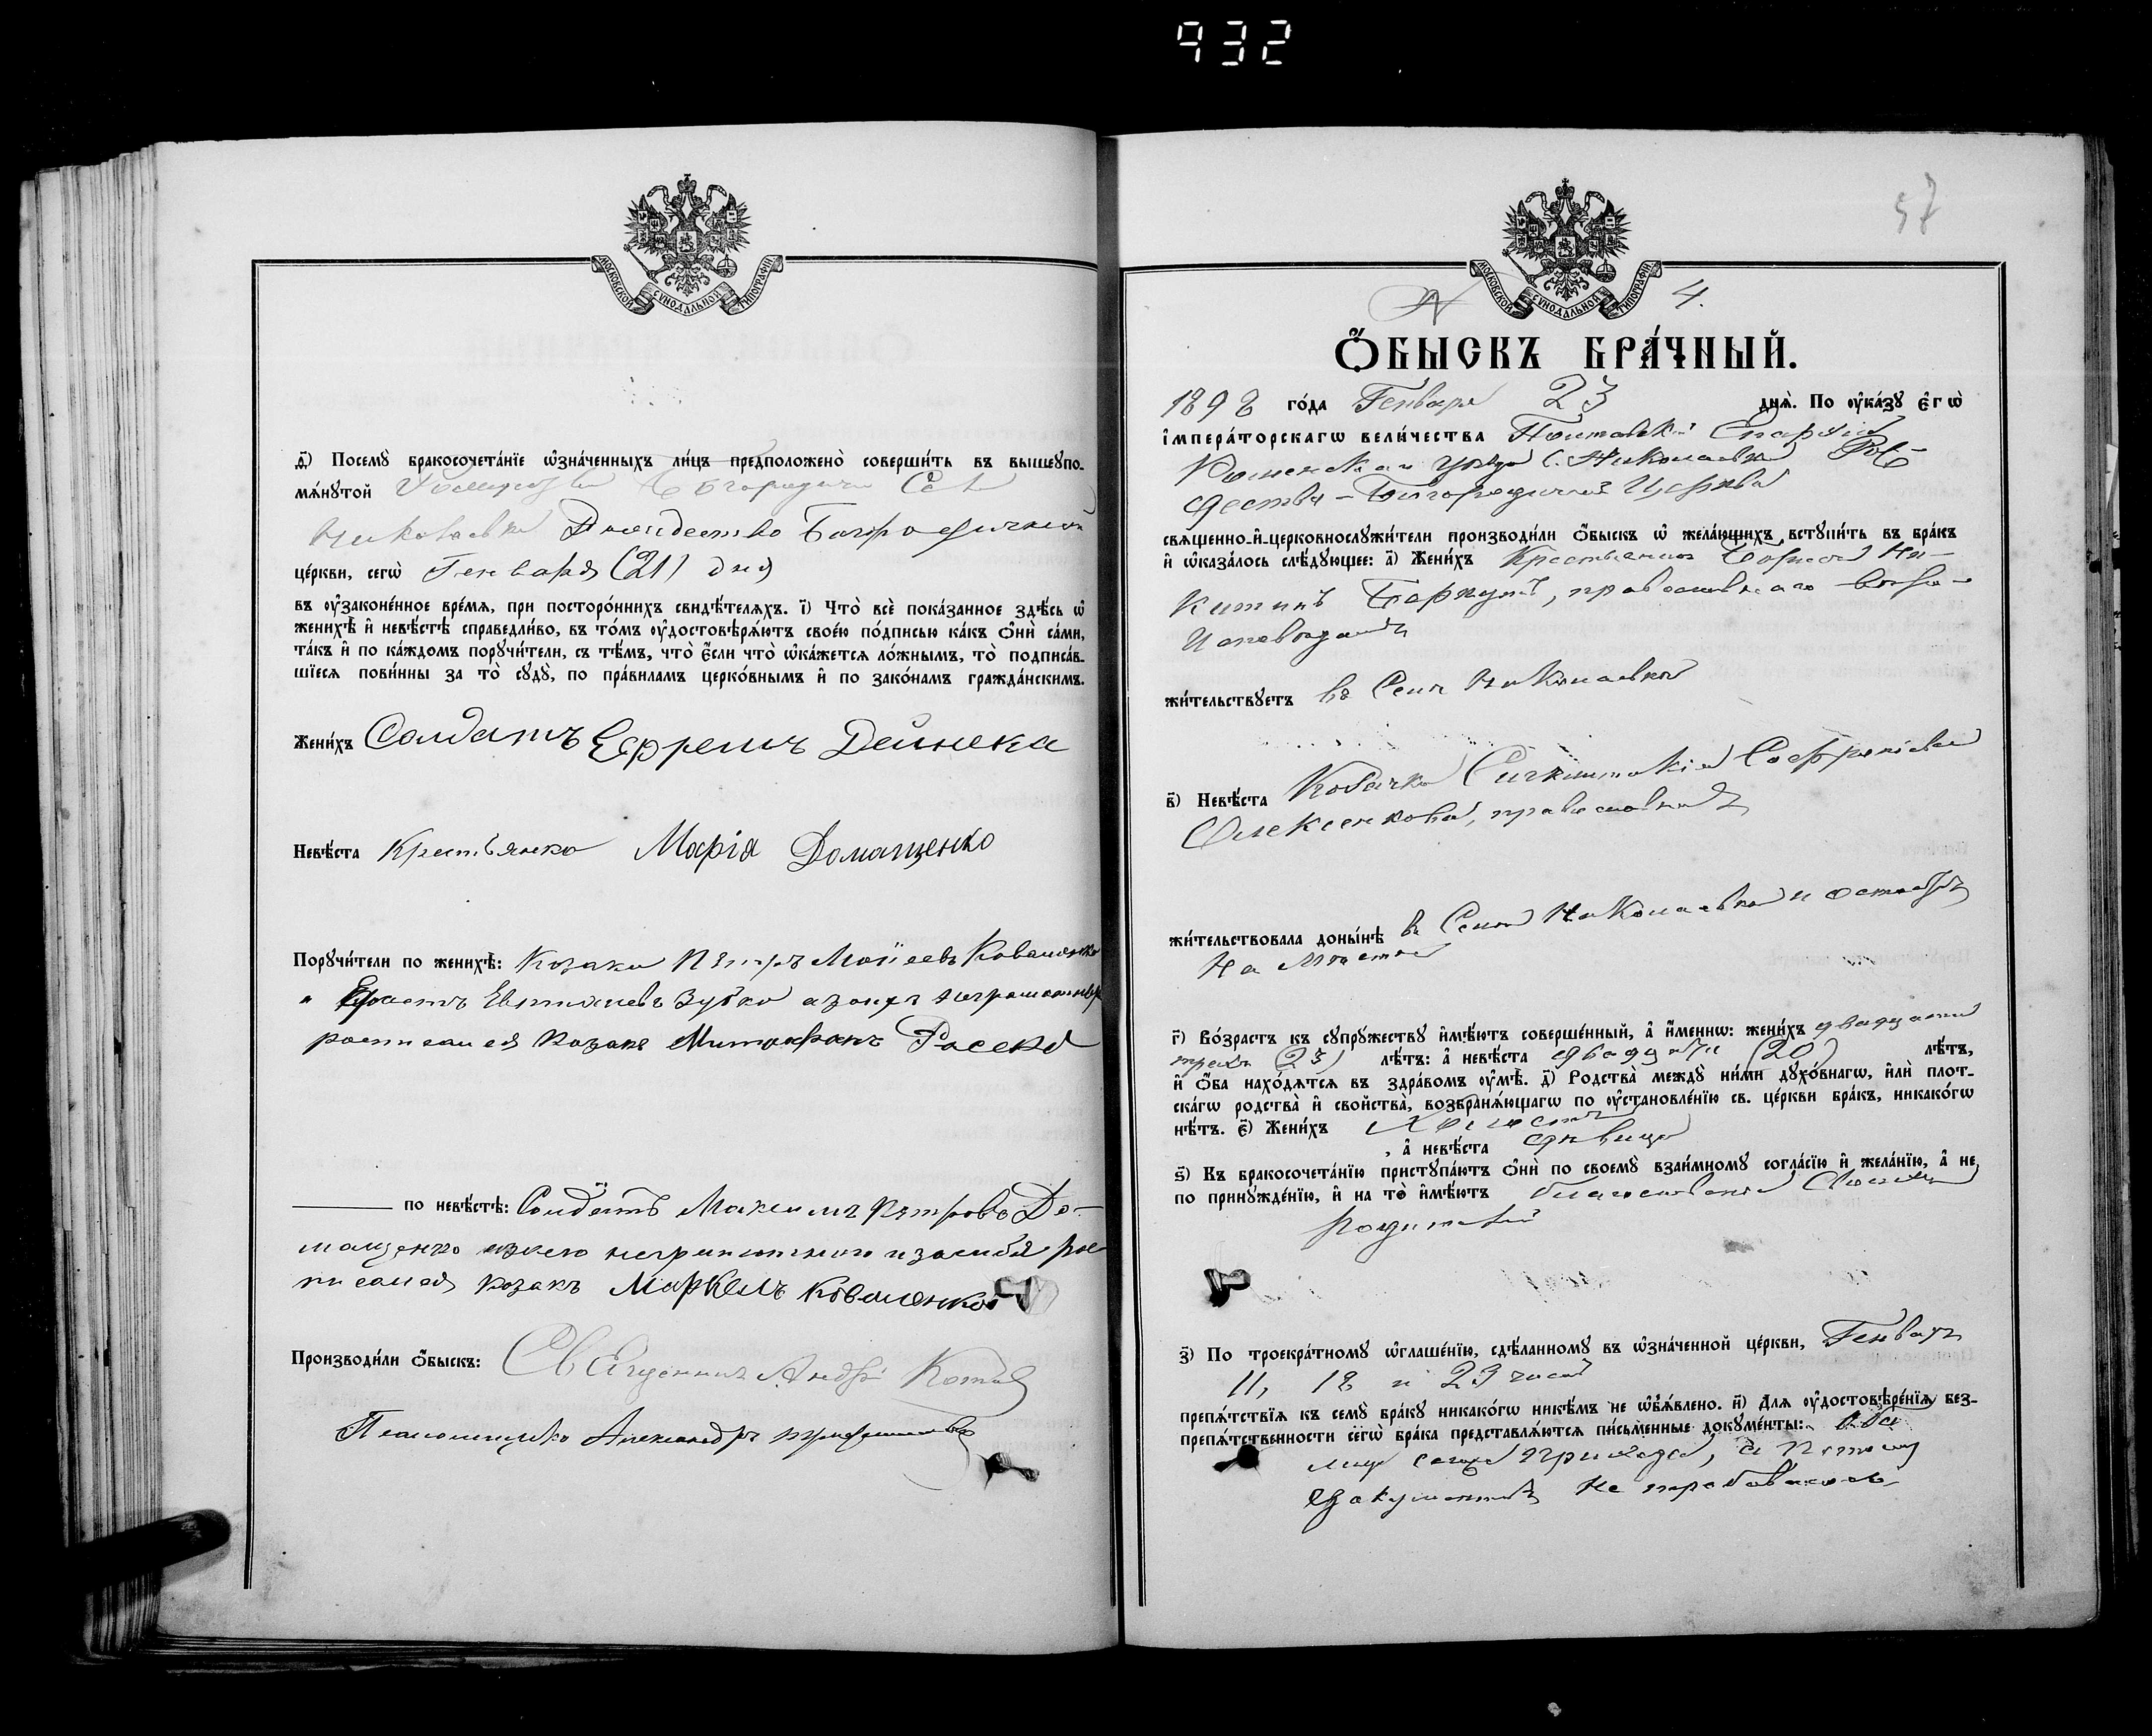 932
МОСКОВСКОЙ СѴНОДАЛЬНОЙ ТИПОГРАФІИ
д҃) Посемꙋ̀ бракосочета́нїе ѡ҆зна́ченныхъ ли́цъ предположено̀ соверши́ть въ вышеꙋпо-
мѧ́нꙋтой
Николаевки Рождество Богородичной
це́ркви, сегѡ̀ Генваря (21) дня
въ ᲂу҆зако́ненное вре́мѧ, при посторо́ннихъ свидѣ́телѧхъ. і҃) Что̀ всѐ пока́занное здѣ́сь ѡ҆
женихѣ̀ и҆ невѣ́стѣ справедли́во, въ то́мъ ᲂу҆достовѣрѧ́ютъ свое́ю по́дписью ка́къ ѻ҆нѝ са́ми,
та́къ и҆ по ка́ждомъ порꙋчи́тели, съ тѣ́мъ, что̀ є҆́сли что̀ ѡ҆ка́жетсѧ ло́жнымъ, то̀ подписа́в-
шїесѧ пови́нны за то̀ сꙋдꙋ̀, по пра́виламъ церко́внымъ и҆ по зако́намъ гражда́нскимъ.
Жени́хъ Солдатъ Ефремъ Дейнека
Невѣ́ста Крестьянка Марія Домащенко
Порꙋчи́тели по женихѣ̀: Козаки Петръ Моисеевъ Коваленко
Зубко а за нихъ неграмотныхъ
росписался козакъ Митрофанъ Росеко
по невѣ́стѣ: Солдатъ Максимъ Петровъ До-
мащенко неграмотного и за себя рос
писался козакъ Маркелъ Коваленко
Производи́ли ѻ҆́быскъ: Священникъ Андрей
Псаломщикъ Александръ
57
МОСКОВСКОЙ СѴНОДАЛЬНОЙ ТИПОГРАФІИ
№ 4.
Ѻ҆́БЫСКЪ БРА́ЧНЫЙ.
1898 го́да Генваря 23 днѧ̀. По ᲂу҆ка́зꙋ є҆гѡ̀
і҆мпера́торскагѡ вели́чества Полтавской Епархіи
Роменскаго уѣзда с. Николаевки Рож-
дество-Богородичной церкви
свѧще́нно-и҆-церковнослꙋжи́тели производи́ли ѻ҆́быскъ ѡ҆ жела́ющихъ встꙋпи́ть въ бра́къ
и҆ ѡ҆каза́лось слѣ́дꙋющее: а҃) Жени́хъ Крестьянинъ Ни-
китинъ православнаго вѣро-
исповѣданія
жи́тельствꙋетъ въ Селѣ Николаевки
в҃) Невѣ́ста Козачка Софроніева
Алексенкова, православная
жи́тельствовала доны́нѣ въ Селѣ Николаевки и осталась
на мѣстѣ
г҃) Во́зрастъ къ сꙋпрꙋ́жествꙋ и҆мѣ́ютъ соверше́нный, а҆ и҆́меннѡ: жени́хъ двадцати
трехъ (23) лѣ́тъ: а҆ невѣ́ста двадцати (20) лѣ́тъ,
и҆ ѻ҆́ба нахо́дѧтсѧ въ здра́вомъ ᲂу҆мѣ̀. д҃) Родства̀ междꙋ̀ ни́ми дꙋхо́внагѡ, и҆лѝ плот-
ска́гѡ родства̀ и҆ сво́йства̀, возбранѧ́ющагѡ по ᲂу҆становле́нїю св. це́ркви бра́къ, никако́гѡ
нѣ́тъ. є҃) Жени́хъ Холостъ
, а҆ невѣ́ста дѣвица
ѕ҃) Къ бракосочета́нїю пристꙋпа́ютъ ѻ҆нѝ по своемꙋ̀ взаи́мномꙋ согла́сїю и҆ жела́нїю, а҆ не
по принꙋжде́нїю, и҆ на то̀ и҆мѣ́ютъ благословеніе Своихъ
родителей
з҃) По троекра́тномꙋ ѡ҆глаше́нїю, сдѣ́ланномꙋ въ ѡ҆зна́ченной це́ркви, Генваря
11, 18 и 23 чиселъ
препѧ́тствїѧ къ семꙋ̀ бра́кꙋ никако́гѡ никѣ́мъ не ѡ҆б̾ѧ́влено. и҃) Длѧ ᲂу҆достовѣре́нїѧ без-
препѧ́тственности сегѡ̀ бра́ка представлѧ́ютсѧ пи́сьменные докꙋме́нты: оба
лица сего прихода, а потому
документовъ не требовалось